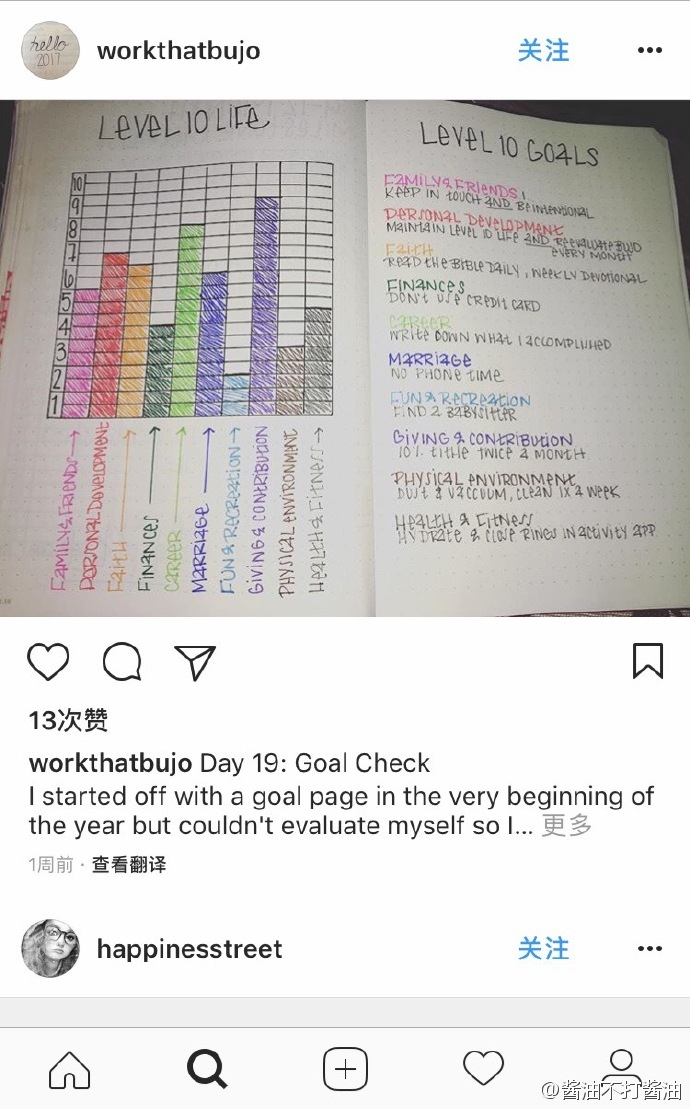 hello
2017
workthatbujo
关注
LEVEL 10 LIFE
10
9
8
7
6
5
4
3
2
1
FAMILY & FRIENDS
PERSONAL DEVELOPMENT
FAITH
FINANCES
CAREER
MARRIAGE
FUN & RECREATION
GIVING & CONTRIBUTION
PHYSICAL ENVIRONMENT
HEALTH & FITNESS
LEVEL 10 GOALS
FAMILY & FRIENDS
KEEP IN TOUCH AND BE INTENTIONAL
PERSONAL DEVELOPMENT
MAINTAIN LEVEL 10 LIFE AND REEVALUATE BUJO
EVERY MONTH
FAITH
READ THE BIBLE DAILY, WEEKLY DEVOTIONAL
FINANCES
DON'T USE CREDIT CARD
CAREER
WRITE DOWN WHAT I ACCOMPLISHED
MARRIAGE
NO PHONE TIME
FUN & RECREATION
FIND A BABYSITTER
GIVING & CONTRIBUTION
10% TITHE TWICE A MONTH
PHYSICAL ENVIRONMENT
DUST & VACCUUM, CLEAN 1X A WEEK
HEALTH & FITNESS
HYDRATE & CLOSE RINGS IN ACTIVITY APP
13次赞
workthatbujo Day 19: Goal Check
I started off with a goal page in the very beginning of
the year but couldn't evaluate myself so I... 更多
1周前 · 查看翻译
happinesstreet
关注
@酱油不打酱油